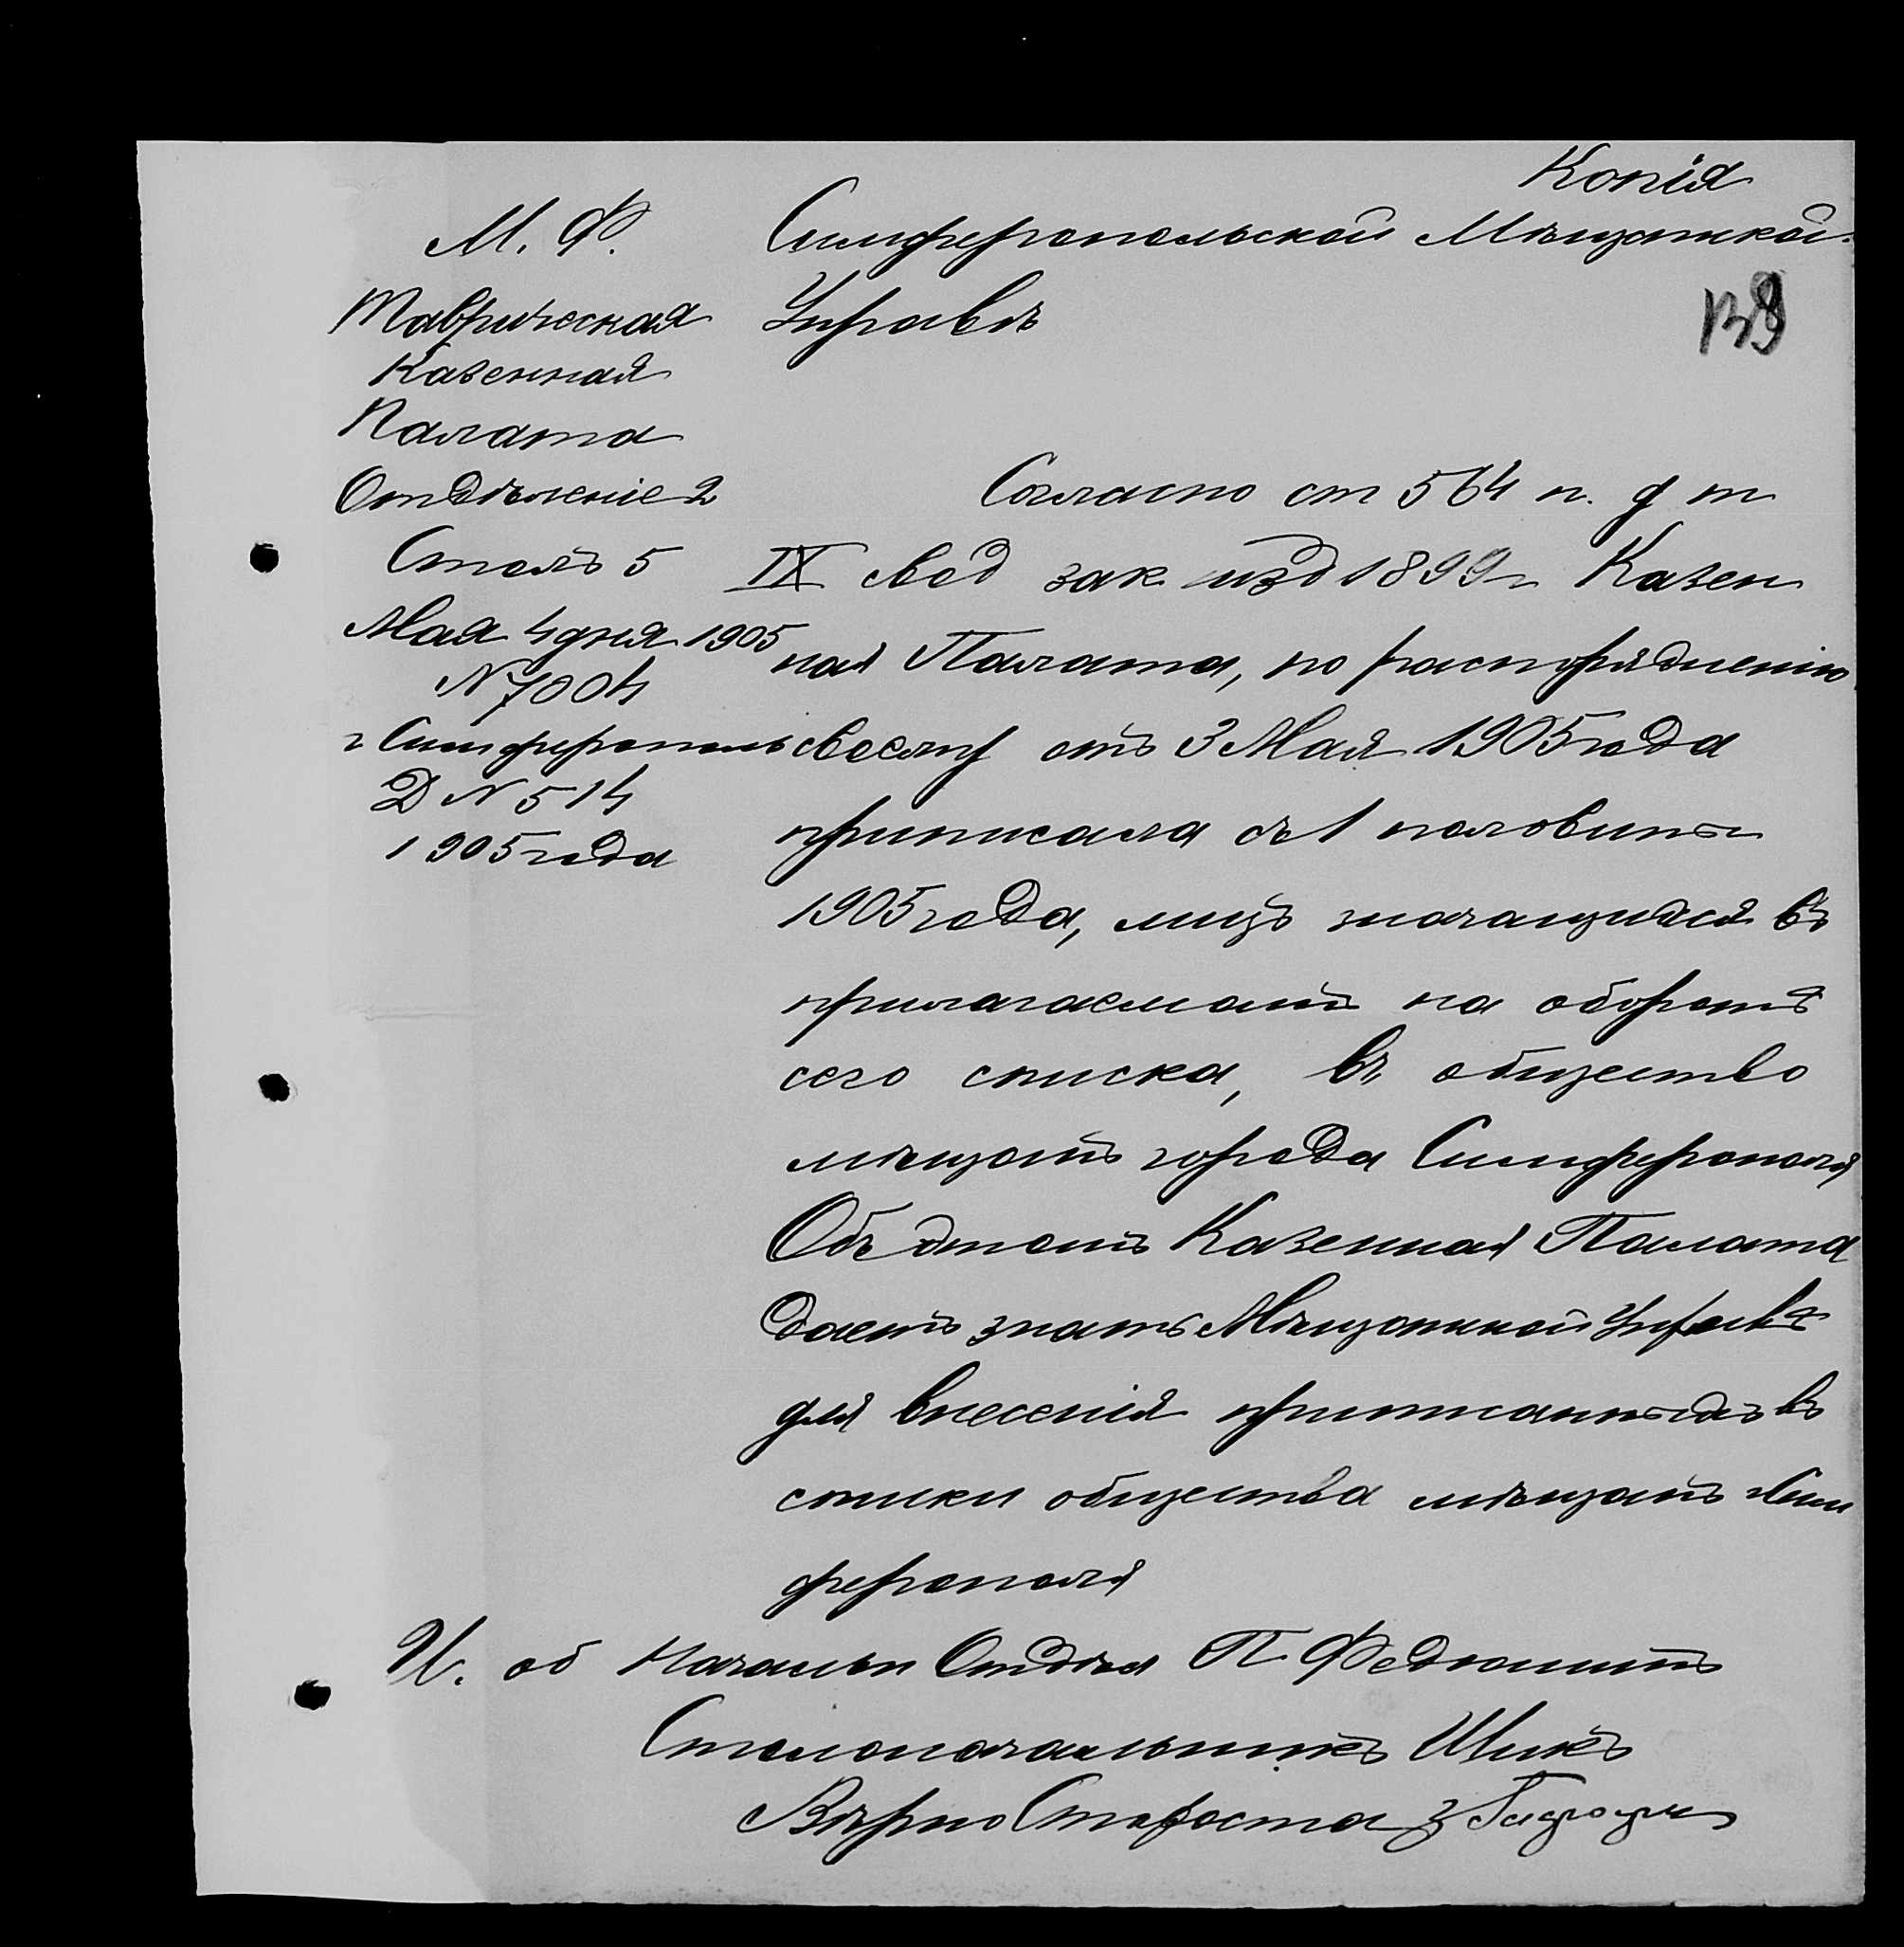 Копія
М. Ф.
Таврическая
Казенная
Палата
Отдѣленіе 2
Столъ 5
Мая 4 дня 1905
N 7004
г Симферополь
Д N 514
1905 года
Симферопольской Мѣщанской
Управѣ
138
Согласно ст 564 п. д т
IX свод зак. изд 1899 г Казен
ная Палата, по распоряженію
своему отъ 3 Мая 1905 года
приписала съ 1 половины
1905 года, лицъ значащихся въ
прилагаемомъ на оборотѣ
сего списка, въ общество
мѣщанъ города Симферополя
Объ этомъ Казенная Палата
даетъ знать Мѣщанской Управѣ
для внесенія приписанныхъ въ
списки общества мѣщанъ г Сим
ферополя
И. об Начальн Отдѣла П Федюшинъ
Столоначальникъ Шикъ
Вѣрно Староста З